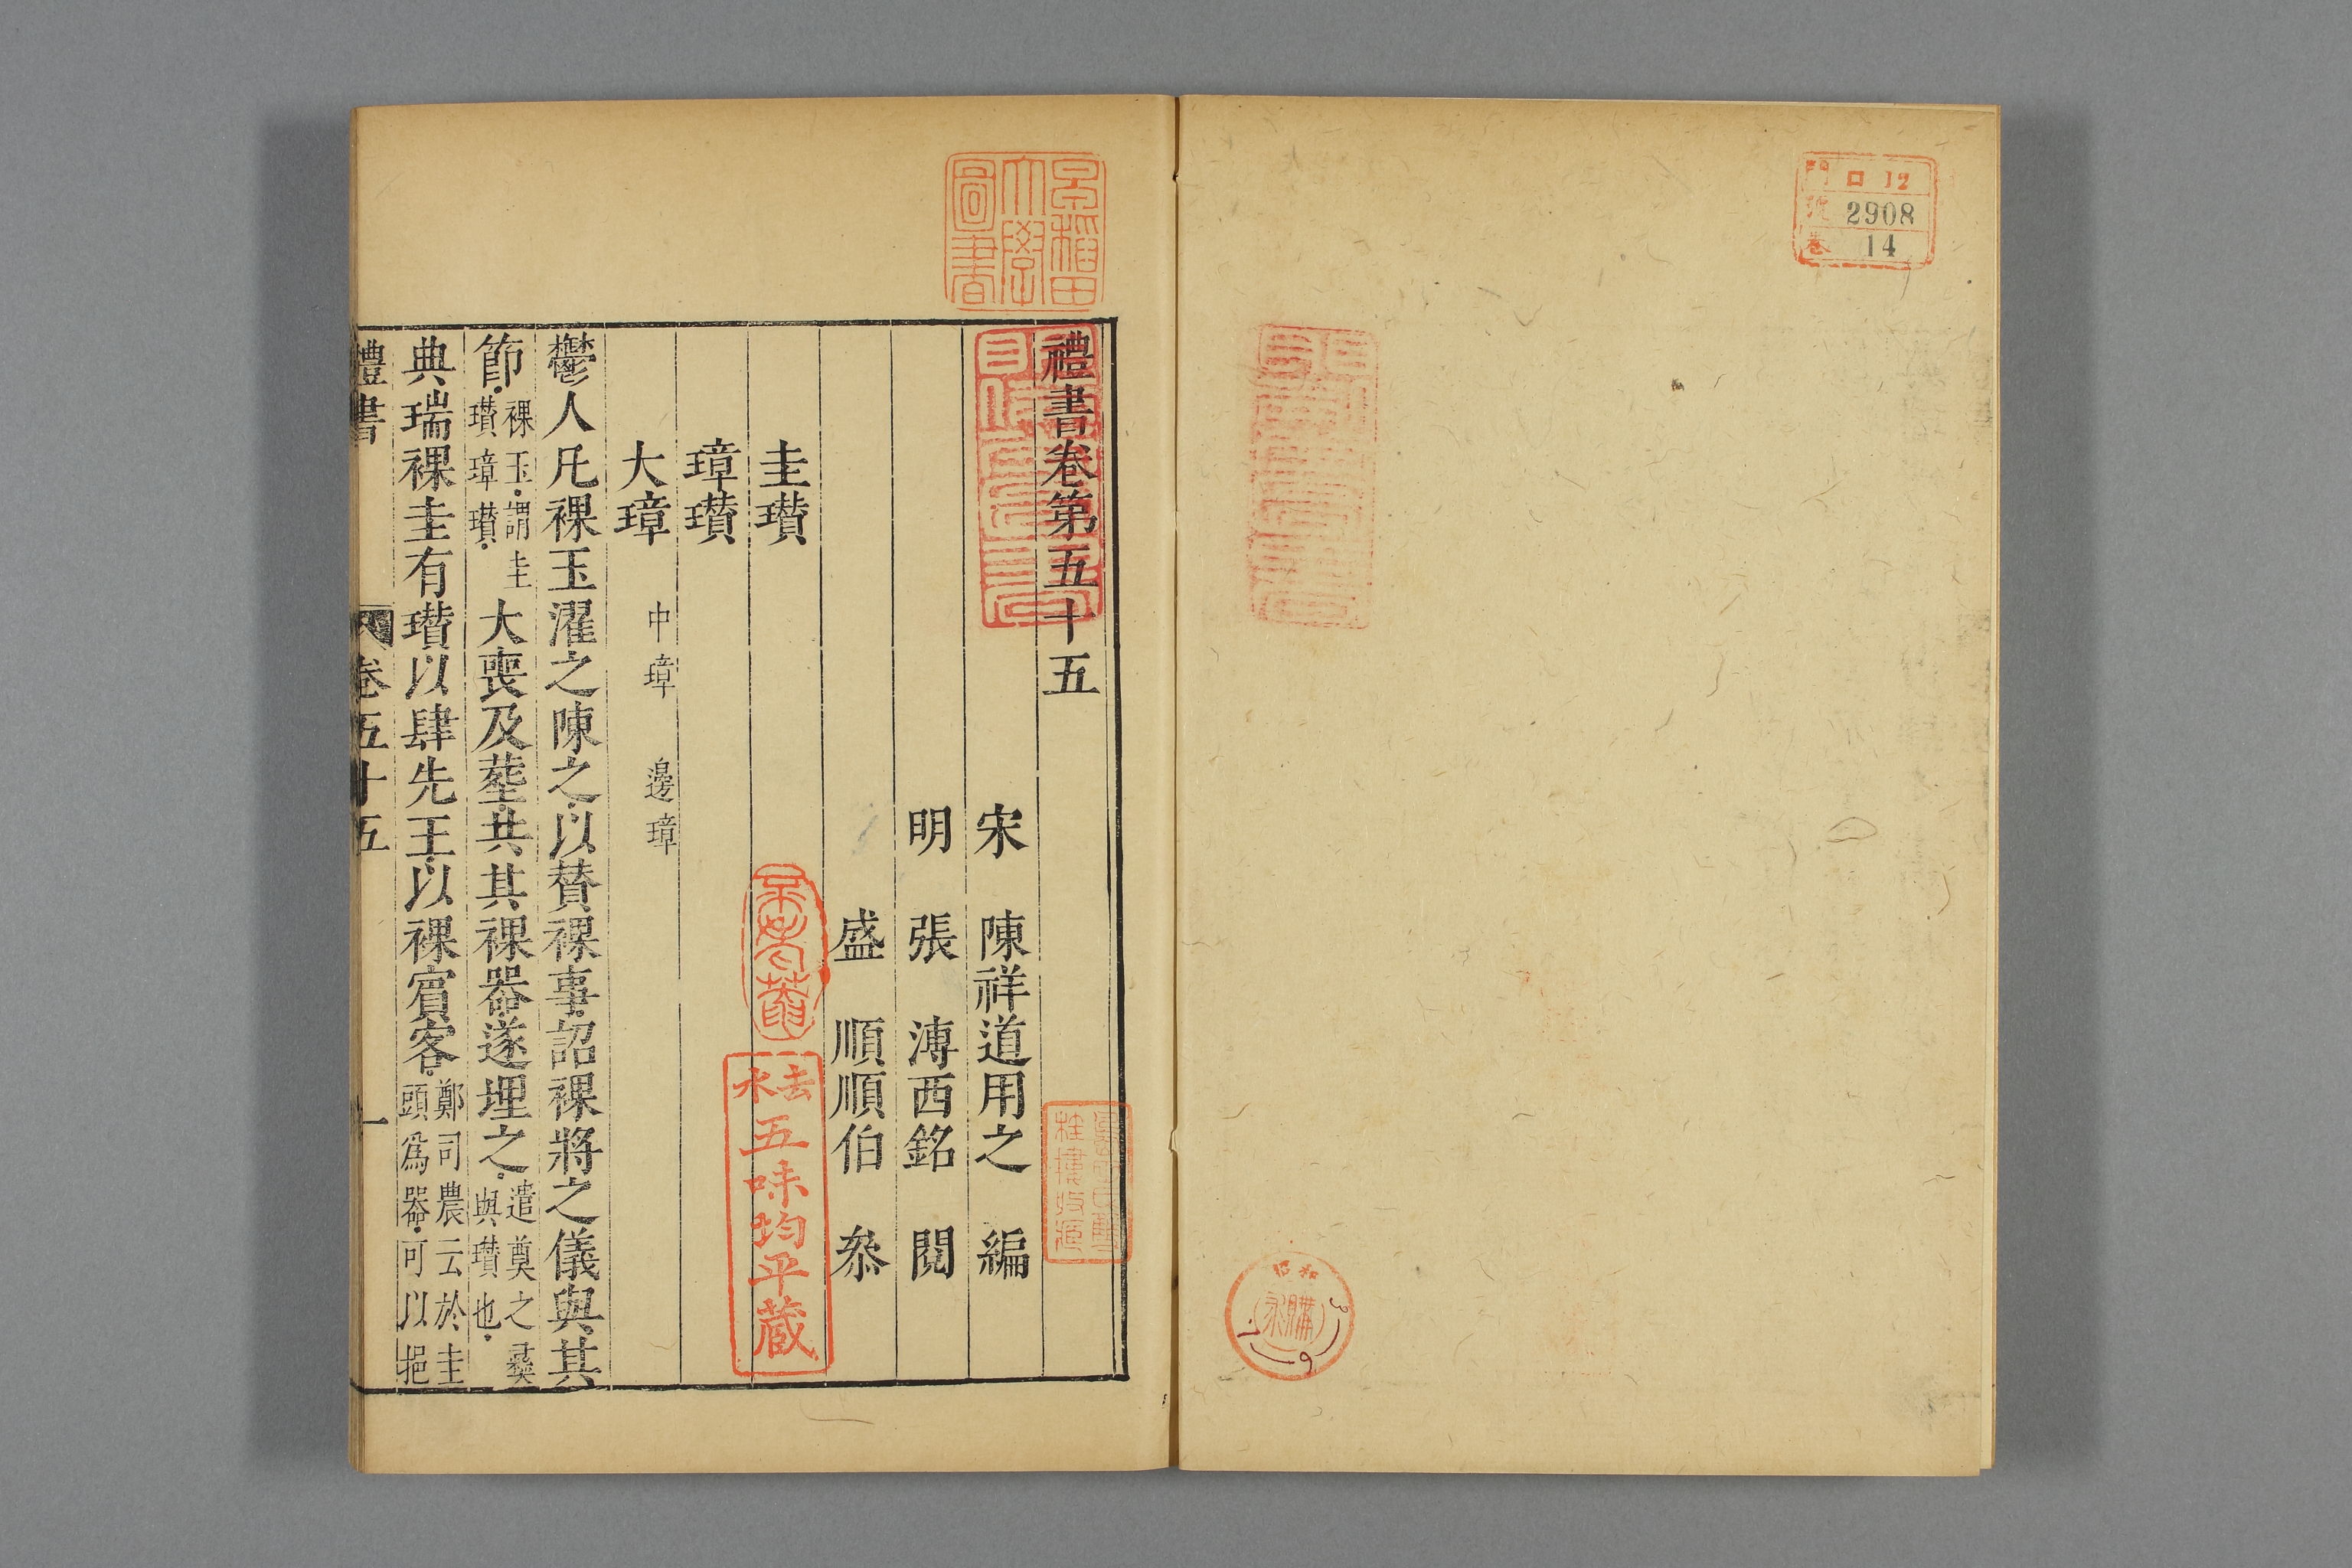 門 ロ 12
號 2908
卷 14
昭和
購
早稲田大學圖書
禮書卷第五十五
宋 陳祥道用之 編
明 張 溥西銘 閱
盛 順順伯 叅
圭瓚
璋瓚
大璋 中璋 邊璋
鬱人凡祼玉濯之陳之以賛祼事詔祼將之儀與其
節祼玉謂圭瓚璋瓚大喪及葬共其祼器遂埋之遣奠之彝與瓚也
典瑞祼圭有瓚以肆先王以祼賓客鄭司農云於圭頭爲器可以挹
禮書 卷五十五 一
五味均平蔵